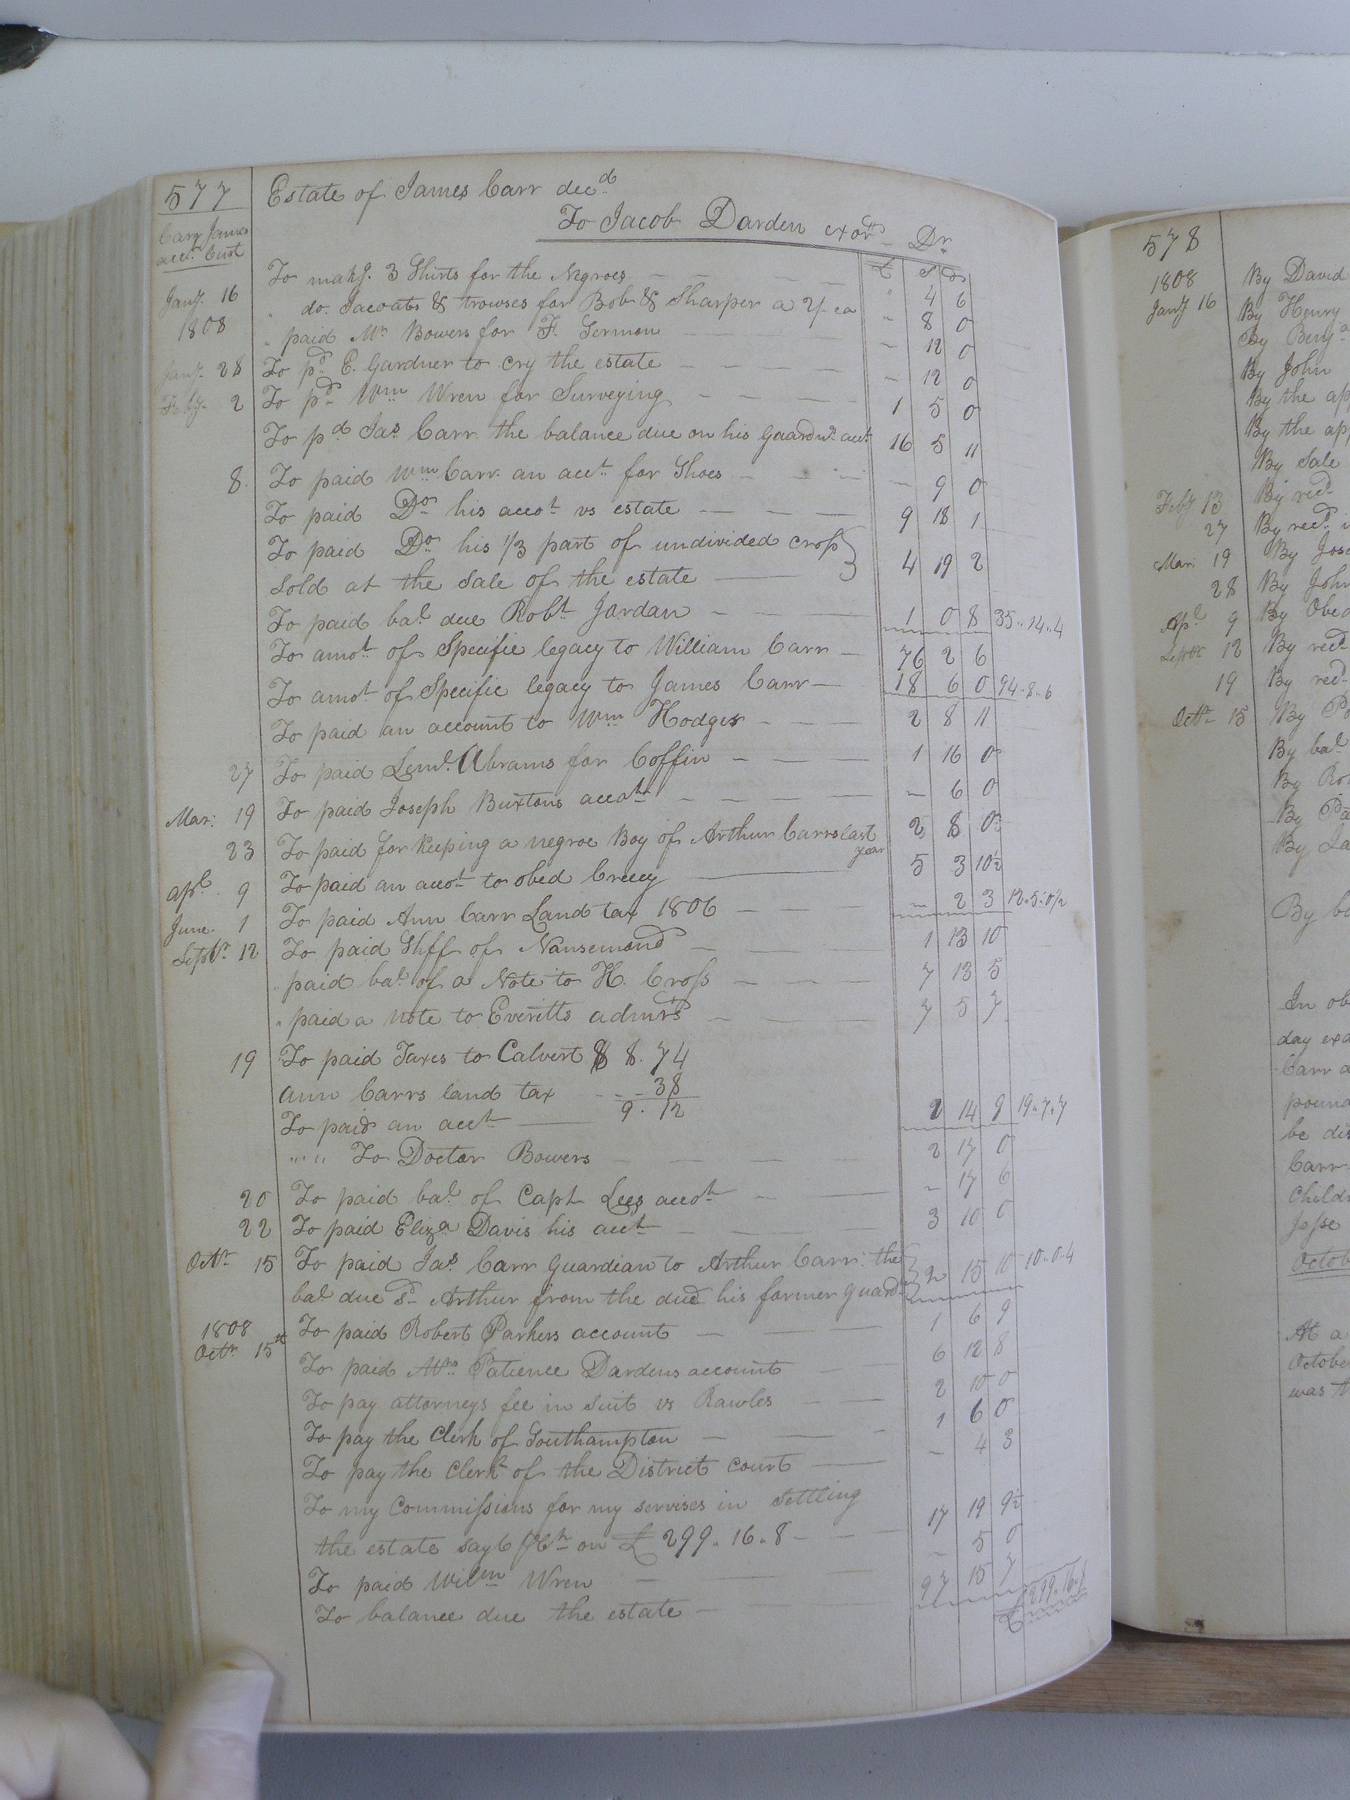 577
Estate of James Carr dec.d
To Jacob Darden exor. Dr
Carr James
acct. Curt
£ S D
To makg. 3 Shirts for the Negroes " 4 6
Jany. 16 " do. Jacoats & trowses for Bob & Sharper a 2/- ea " 8 0
1808 " paid Mr. Bowers for F. Sermon - 12 0
Jany. 28 To pd. E. Gardner to cry the estate - 12 0
Feby. 2 To pd. Wm Wren for Surveying 1 5 0
To pd Jas Carr the balance due on his guardn. acct 16 5 11
8. To paid Wm Carr an acct. for Shoes - 9 0
To paid Do his accot vs estate 9 18 1
To paid Do his 1/3 part of undivided crop
Sold at the Sale of the estate 4 19 2
To paid bal. due Robt. Jordan 1 0 8 35.14.4
To amot. of Specific legacy to William Carr 76 2 6
To amot. of Specific legacy to James Carr 18 6 0 94.8.6
To paid an account to Wm Hodges 2 8 11
27 To paid Leml. Abrams for Coffin 1 16 0
Mar. 19 To paid Joseph Buxtons accot. - 6 0
23 To paid for keeping a negroe Boy of Arthur Carrs last
year 2 8 0
apl. 9 To paid an accot. to obed Creecy 5 3 10½
June. 1 To paid Ann Carr Land tax 1806 - 2 3 12.5.0½
Septr. 12 To paid Shff of Nansemond 1 13 10
" paid bal. of a Note to H. Cross 7 13 5
" paid a note to Everitts admrs 7 5 7
19 To paid Taxes to Calvert $ 8.74
Ann Carrs land tax 38
To paid an acct. 9.12 2 14 9 19.7.7
" " " To Doctor Bowers 2 17 0
20 To paid bal. of Capt Lees accot. - 17 6
22 To paid Eliza Davis his acct. 3 10 0
Octr. 15 To paid Jas Carr Guardian to Arthur Carr the
bal. due sd. Arthur from the due his former guard. 2 15 10 10.0.4
1808 To paid Robert Parkers account 1 6 9
Octr. 15th
To paid Mrs. Patience Dardens account 6 12 8
To pay attorneys fee in suit vs Rawles 2 10 0
To pay the Clerk of Southampton 1 6 0
To pay the Clerk of the District court - 4 3
To my Commissions for my servises in Settling
the estate say 6 Ct. on £ 299.16.8 17 19 9½
To paid Wilm Wren - 5 0
To balance due the estate 97 15 7
578
1808 By David
Jany 16 By Henry
By Benja
By John
By the ap
By the app
By Sale
Feby 13 By recd.
27 By recd. i
Mar. 19 By Jose
28 By John
Apl. 9 By Obed
Septr 12 By recd
19 By recd
Octr. 15 By Po
By bal.
By Ro
By Pa
By Ja
By ba
In ob
day exa
Carr a
pound
be dis
Carr
Childr
Jesse
Octob
At a
Octobe
was t